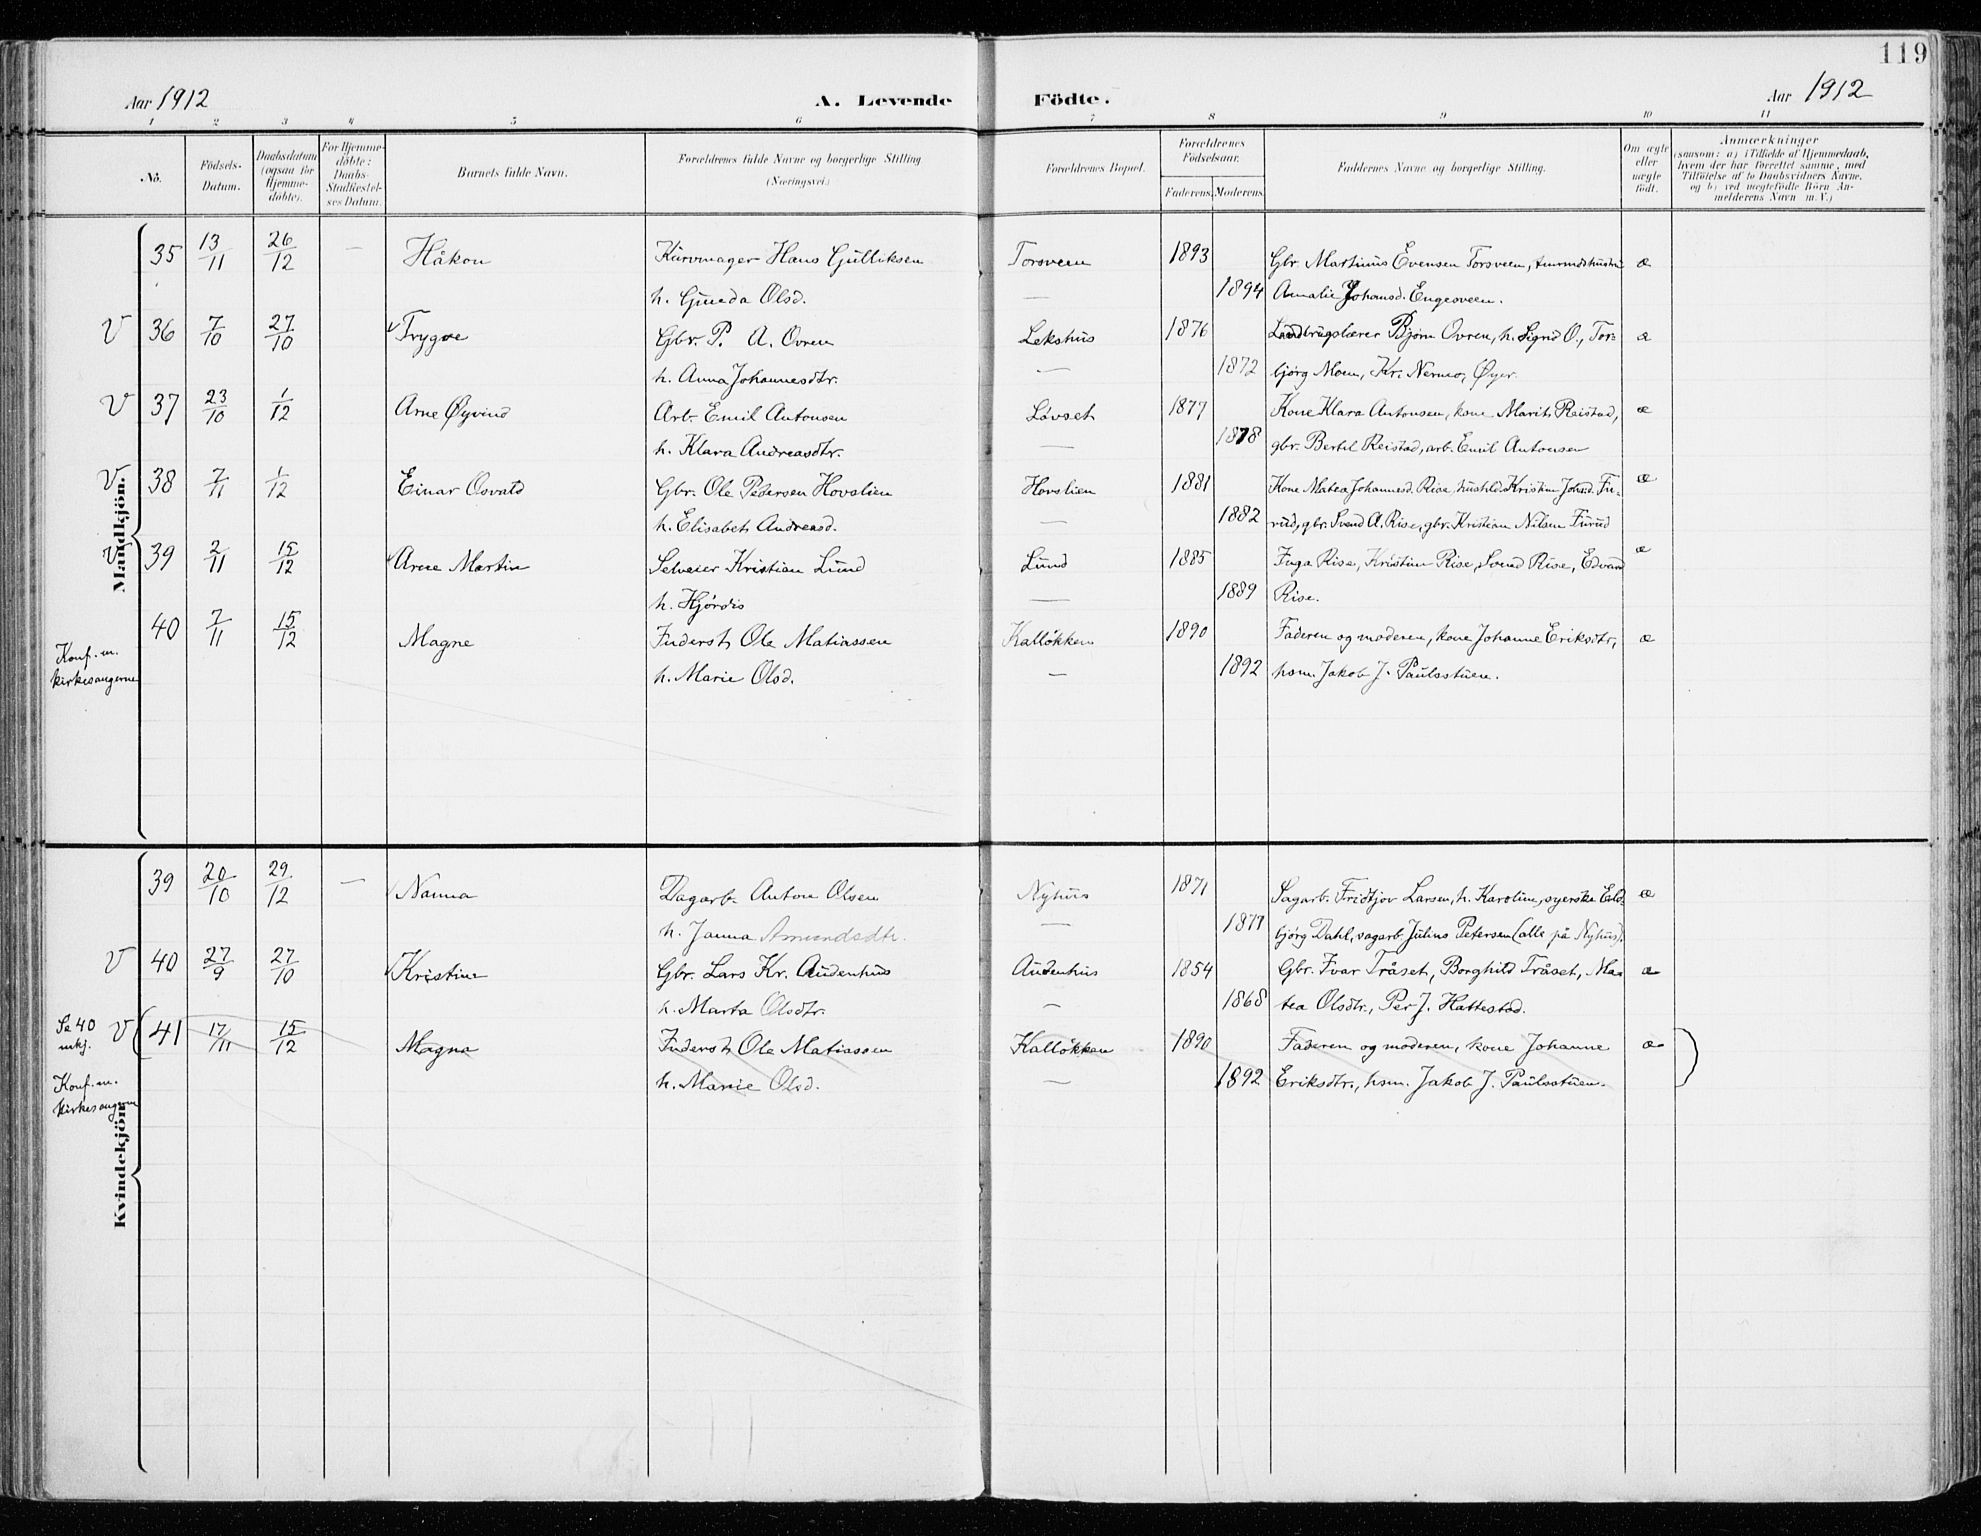 119
Aar 1912 A. Levende Födte. Aar 1912
1 2 3 4 5 6 7 8 9 10 11
No. Födsels-Datum. Daabsdatum (ogsaa for Hjemmedöbte). For Hjemmedöbte: Daabs-Stadfæstelses Datum. Barnets fulde Navn. Forældrenes fulde Navne og borgerlige Stilling (Næringsvei.) Forældrenes Bopæl. Forældrenes Födselsaar. Faderens. Moderens. Faddernes Navne og borgerlige Stilling. Om ægte eller uægte födt. Anmærkninger (saasom: a) i Tilfælde af Hjemmedaab, hvem der har forrettet samme, med Tilföielse af to Daabsvidners Navne. og b) ved uægtefödte Börn Anmelderens Navn m. V.)
Mandkjön.
35 13/11 26/12 — Håkon Kurvmager Hans Gulliksen Torsveen 1893 Gbr. Martinus Evensen Torsveen, æ
h. Gunda Olsd. — 1894 Amalie Johansd. Engesveen.
V 36 7/10 27/10 Trygve Gbr. P. A. Ovren Lekshus 1876 Landbrugslærer Bjørn Ovren, h. Sigrid O., Tor- æ
h. Anna Johannesdtr. — 1872 bjørg Moen, Kr. Nermo, Øyer.
V 37 23/10 1/12 Arne Øyvind Arb. Emil Antonsen Løvset 1877 Kone Klara Antonsen, kone Marit Reistad, æ
h. Klara Andreasdtr. — 1878 gbr. Bertil Reistad, arb. Emil Antonsen
V 38 7/11 1/12 Einar Osvald Gbr. Ole Petersen Hovslien Hovslien 1881 Kone Matea Johannesd. Rise, hushld. Kristine Johsd. Fu- æ
h. Elisabet Andreasd. — 1882 rud, gbr. Svend A. Rise, gbr. Kristian Nilsen Furud
V 39 2/11 15/12 Arne Martin Selveier Kristian Lund Lund 1885 Inga Rise, Kristine Rise, Svend Rise, Edvard æ
h. Hjørdis — 1889 Rise.
40 7/11 15/12 Magne Inderst Ole Matiassen Kalløkken 1890 Faderen og moderen, kone Johanne Eriksdtr, æ
Konf. m.
kirkesangerne
h. Marie Olsd. — 1892 hsm. Jakob J. Paulsstuen.
Kvindekjön
39 20/10 29/12 — Nanna Dagarb. Anton Olsen Nyhus 1871 Sagarb. Fridtjov Larsen, h. Karoline, syerske Eld- æ
h. Janna Amundsdtr. — 1877 bjørg Dahl, sagarb. Julius Petersen (alle på Nyhus).
V 40 27/9 27/10 Kristine Gbr. Lars Kr. Audenhus Audenhus 1854 Gbr. Ivar Tråset, Borghild Tråset, Ma- æ
h. Marta Olsdtr. — 1868 tea Olsdtr., Per J. Hattestad.
Se 40
mkj.
V (41 17/11 15/12 Magna Inderst Ole Matiassen Kalløkken 1890 Faderen og moderen, kone Johanne æ )
h. Marie Olsd. — 1892 Eriksdtr., hsm. Jakob J. Paulsstuen.
Konf. m.
kirkesangerne